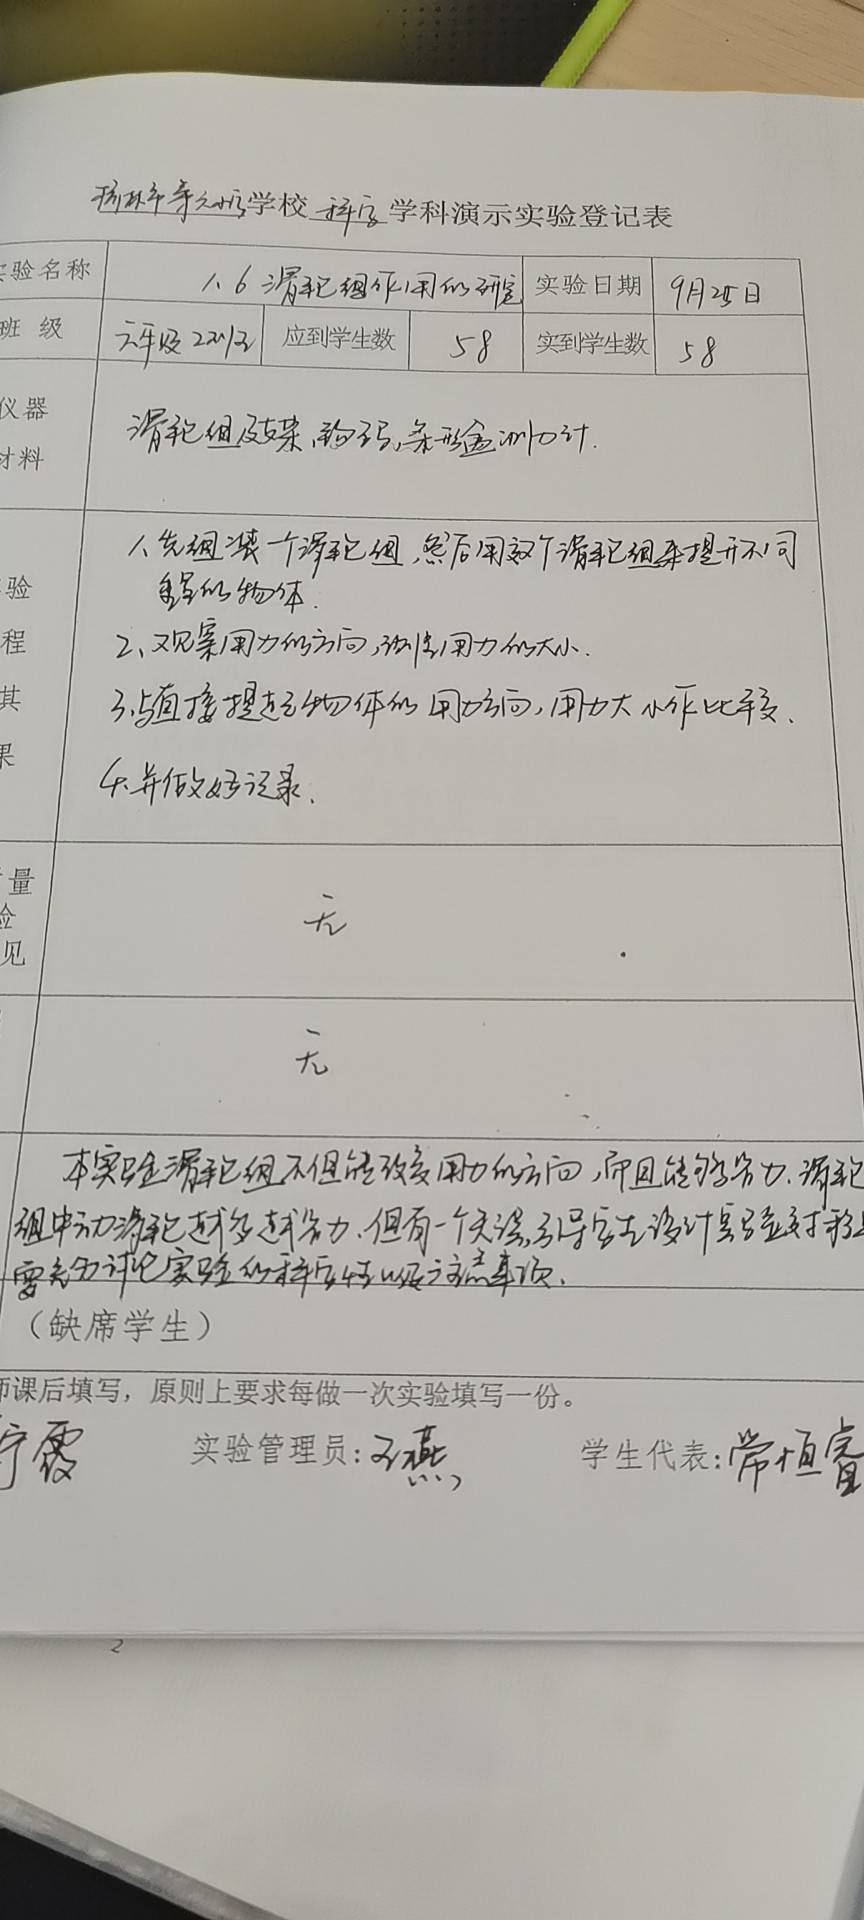 学校 科学 学科演示实验登记表
验名称 1.6 滑轮组作用的研究 实验日期 9月25日
班 级 六年级 应到学生数 58 实到学生数 58
仪器
材料
滑轮组及支架、钩码、条形盒测力计.
1、先组装一个滑轮组,然后用这个滑轮组来提升不同
重量的物体.
验
程
2、观察用力的方向,用力的大小.
其
3.与直接提起物体的用力方向,用力大小作比较.
果
4.并做好记录.
量
验
见
无
无
本实验滑轮组不但能改变用力的方向,而且能够省力.滑轮
组中动滑轮越多越省力.但有一个引导学生设计实验时
需充分讨论实验的科学性以及注意事项.
(缺席学生)
师课后填写,原则上要求每做一次实验填写一份。
霞 实验管理员:王燕 学生代表:常恒睿
2